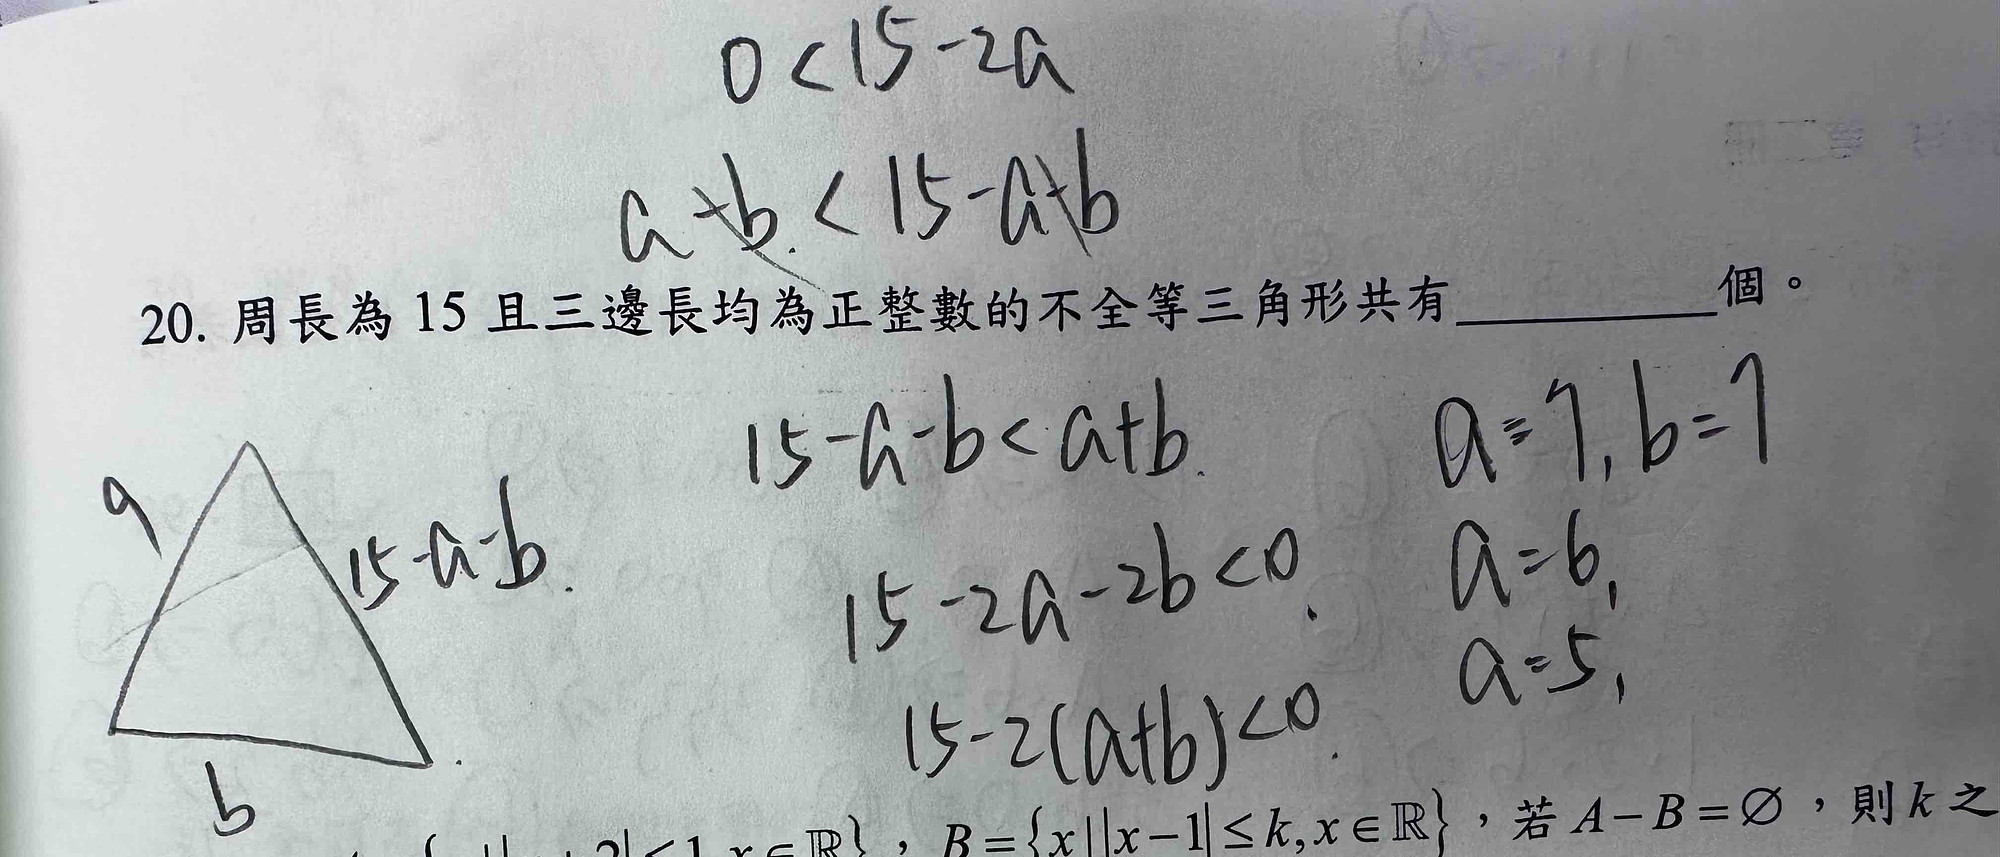 0<15-2a
a+b.<15-a+b
20. 周長為 15 且三邊長均為正整數的不全等三角形共有__________個。
15-a-b<a+b.
a=7,b=7
a
15-a-b.
15-2a-2b<0.
a=6,
a=5,
15-2(a+b)<0.
b
B={x||x-1|≤k,x∈ℝ},若 A-B=∅,則 k 之